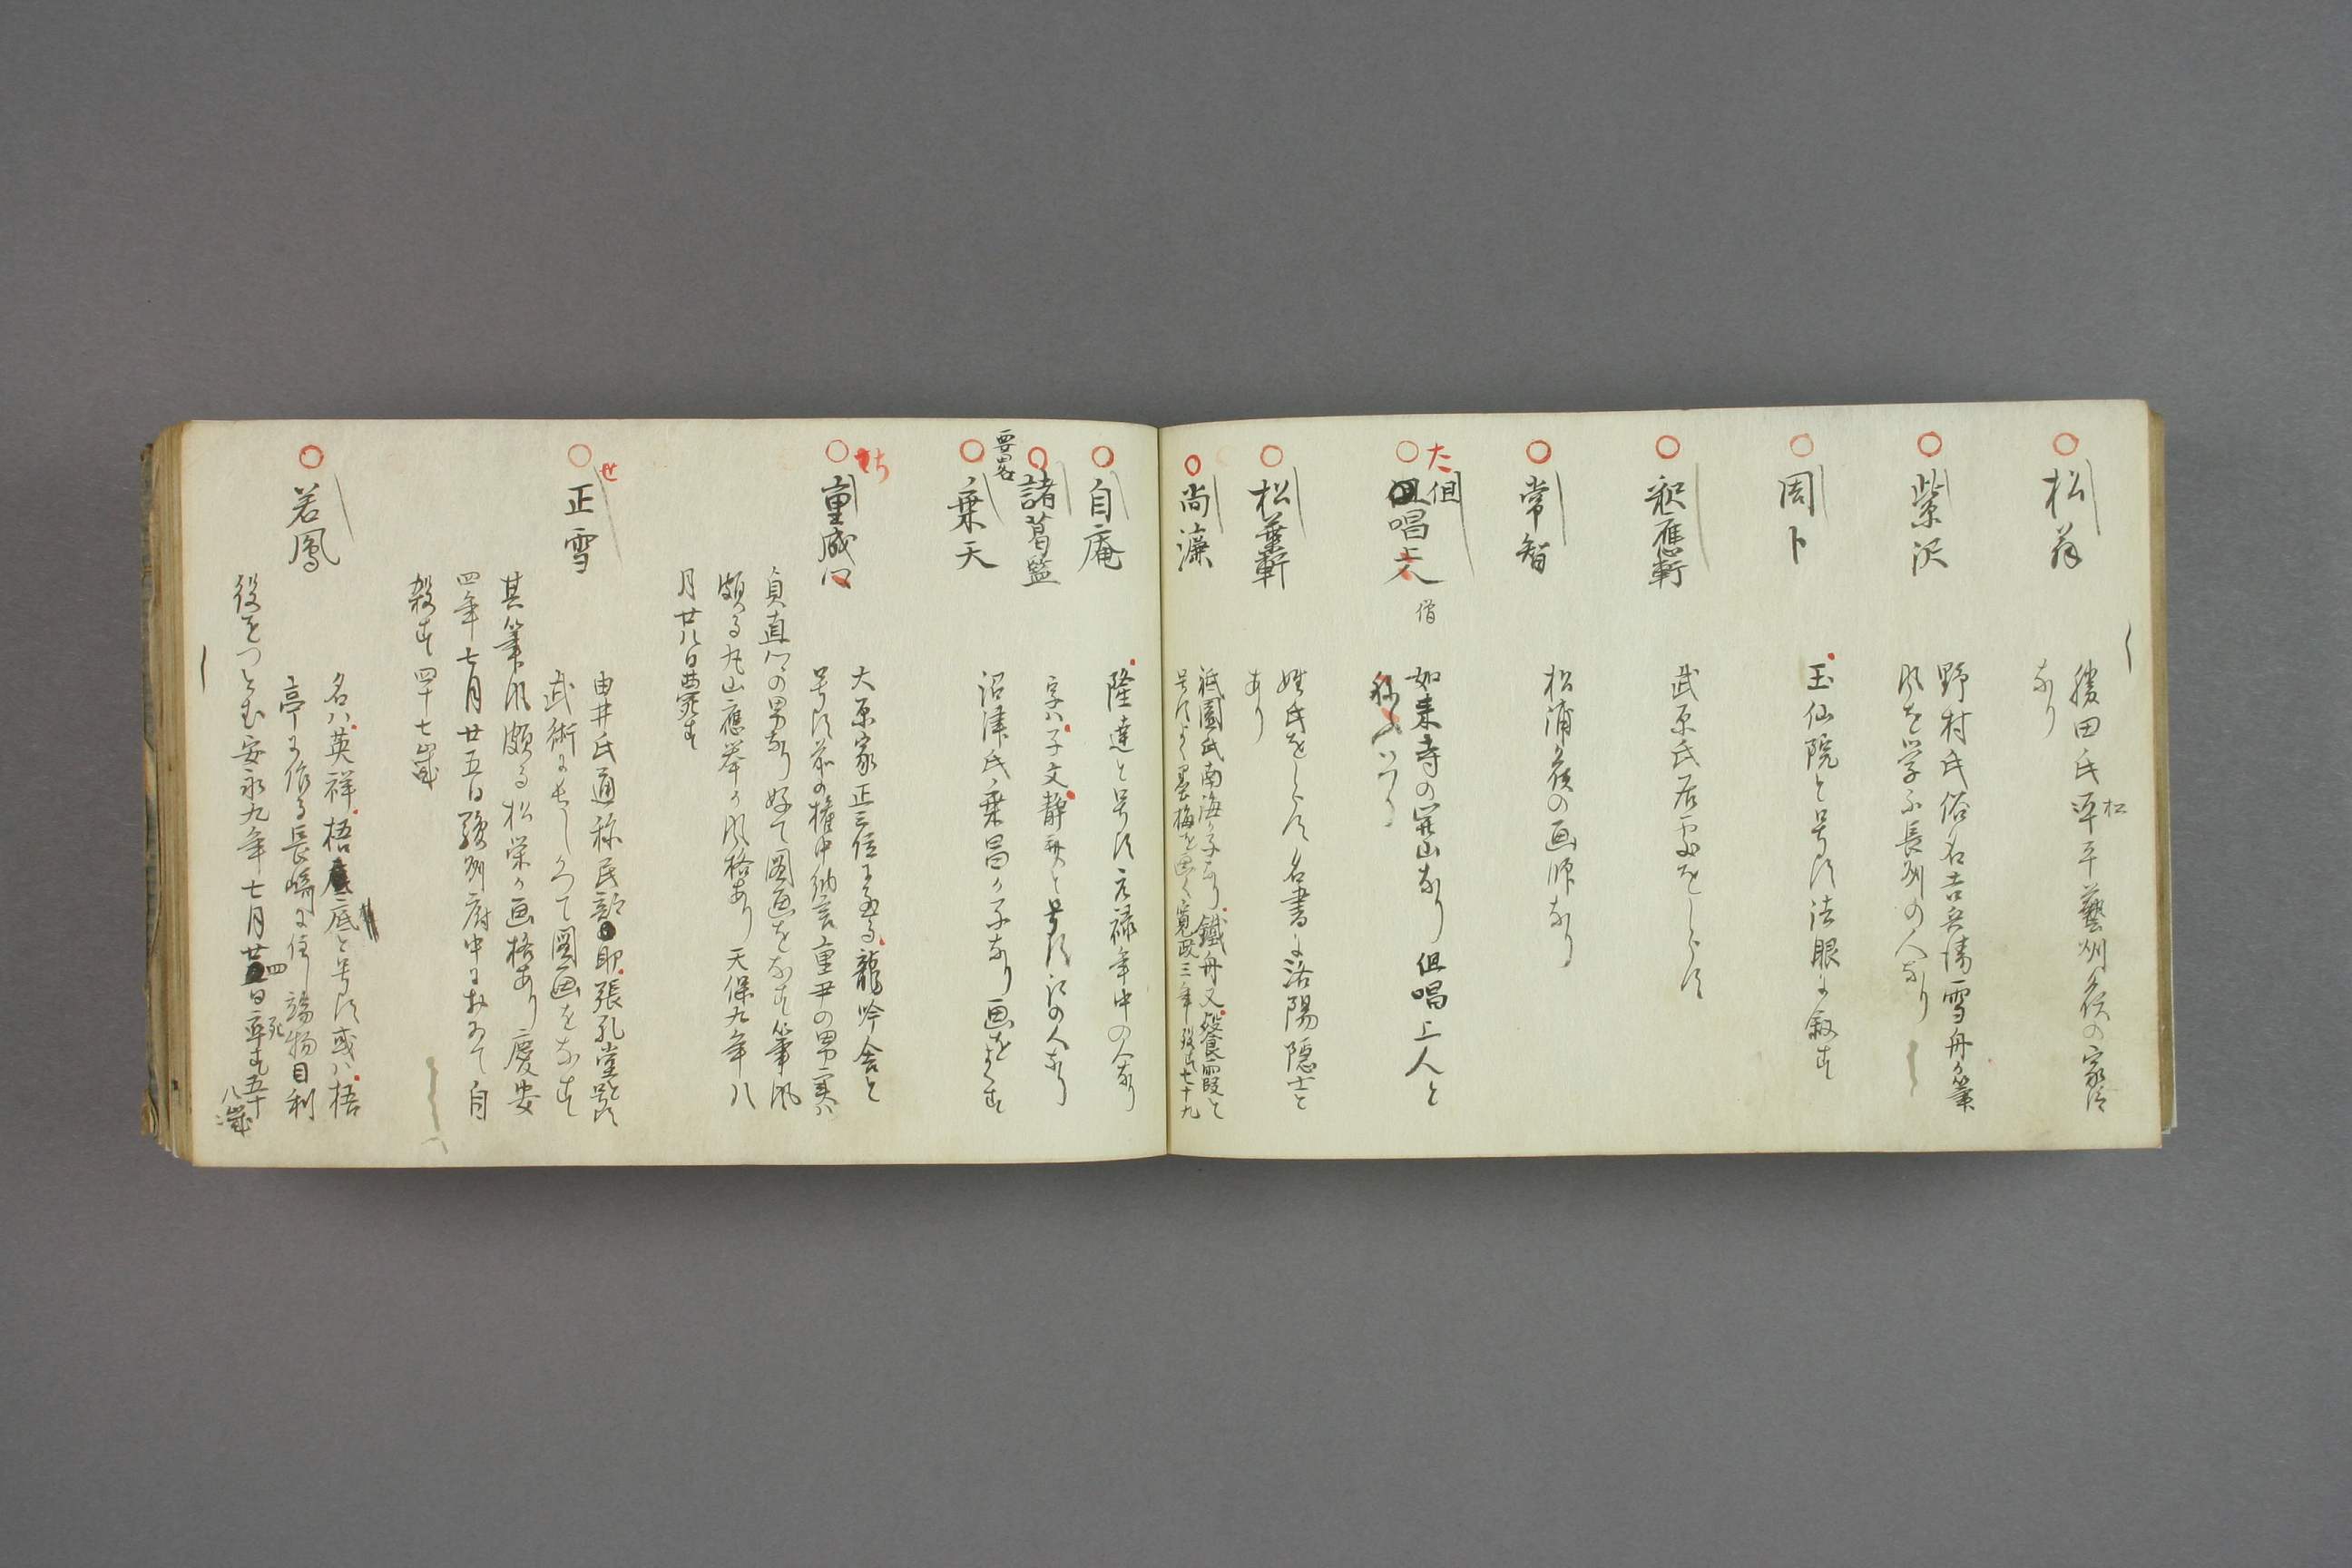 松荷
勝田氏平平藝州矦の家臣
松
なり
紫沢
野村氏俗名吉兵衛雪舟か筆
風を学ふ長州の人なり
周卜
玉仙院と号す法眼に叙す
釈應軒
武原氏居所をしらす
常智
松浦矦の画師なり
た
但
唱上人
僧
如来寺の開山なり但唱上人と
称す
松葉軒
姓氏をしらす名書に洛陽隠士と
あり
尚濂
祗園氏南海か子なり鐵舟又餐霞と
号すよく墨梅を画く寛政三年歿す七十九
自庵
隆達と号す元禄年中の人なり
諸葛監
字ハ子文静齋と号す江の人なり
要畧
乗天
沼津氏乗昌か子なり画をよくす
ち
重成
大原家正三位に至る龍吟舎と
号す前の権中納言重尹の男実ハ
貞直の男なり好て図画をなす筆風
頗る丸山應挙か風格あり天保九年八
月廿八日薨す
せ
正雪
由井氏通称民部助張孔堂と号す
武術に長しかつて図画をなす
其筆風頗る松栄か画格あり慶安
四年七月廿五日駿州府中におゐて自
殺す四十七歳
若鳳
名ハ英祥梧底と号す或ハ梧
亭に作る長崎に住し諸物目利
役をつとむ安永九年七月廿四日死す五十
八歳